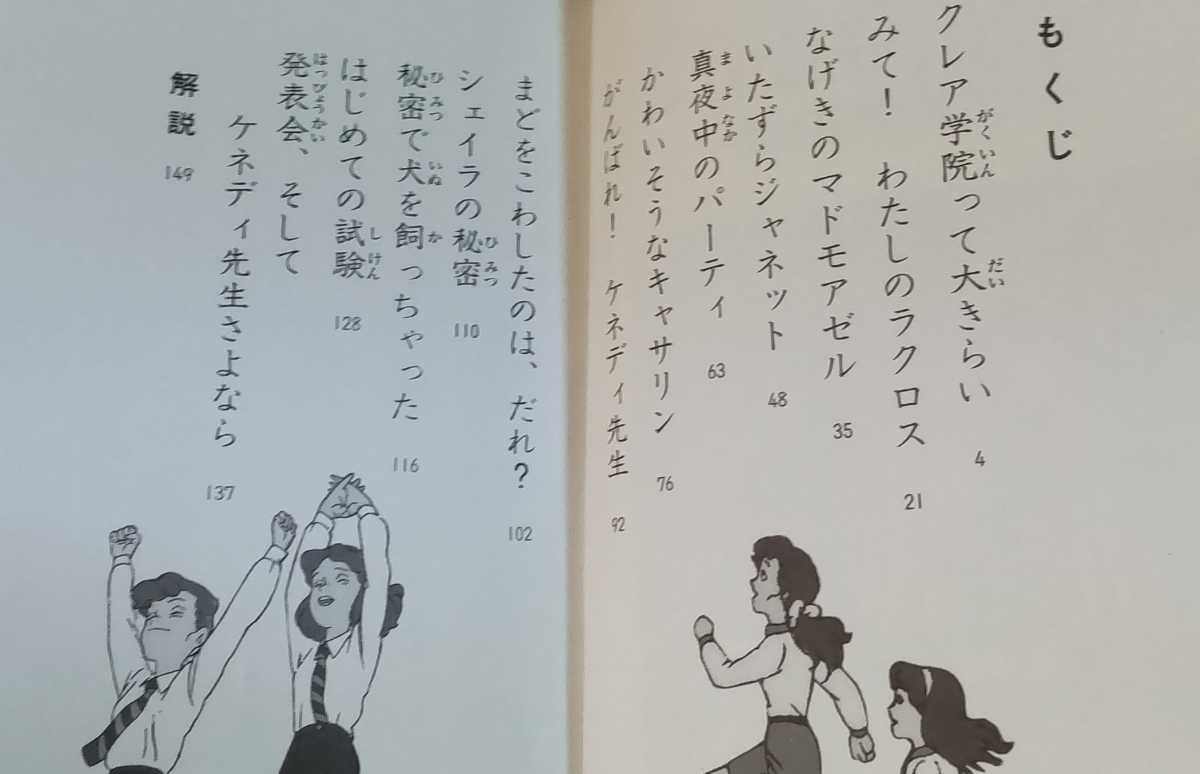 もくじ
クレア学院って大きらい 4
みて！ わたしのラクロス 21
なげきのマドモアゼル 35
いたずらジャネット 48
真夜中のパーティ 63
かわいそうなキャサリン 76
がんばれ！ ケネディ先生 92
まどをこわしたのは、だれ？ 102
シェイラの秘密 110
秘密で犬を飼っちゃった 116
はじめての試験 128
発表会、そして
ケネディ先生さよなら 137
解説 149